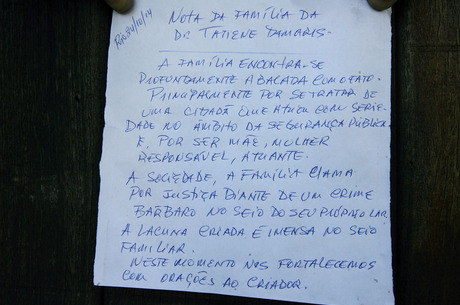 Rio 30/10/14
NOTA DA FAMÍLIA DA
DR TATIENE DAMARIS-
A FAMÍLIA ENCONTRA-SE
PROFUNDAMENTE ABALADA COM O FATO.
PRINCIPALMENTE POR SE TRATAR DE
UMA CIDADÃ QUE ATUOU COM SERIE-
DADE NO ÂMBITO DA SEGURANÇA PÚBLICA
E, POR SER MÃE, MULHER
RESPONSÁVEL, ATUANTE.
A SOCIEDADE, A FAMÍLIA CLAMA
POR JUSTIÇA DIANTE DE UM CRIME
BÁRBARO NO SEIO DO SEU PRÓPRIO LAR.
A LACUNA CRIADA É IMENSA NO SEIO
FAMILIAR.
NESTE MOMENTO NOS FORTALECEMOS
COM ORAÇÕES AO CRIADOR.